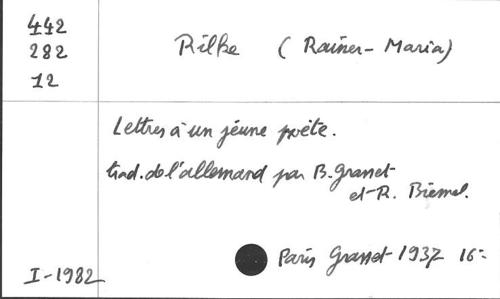 442
282
12
Rilke (Rainer-Maria)
Lettres à un jeune poète.
trad. de l'allemand par B. Grasset
et R. Biemel.
Paris Grasset 1937 16-
I-1982